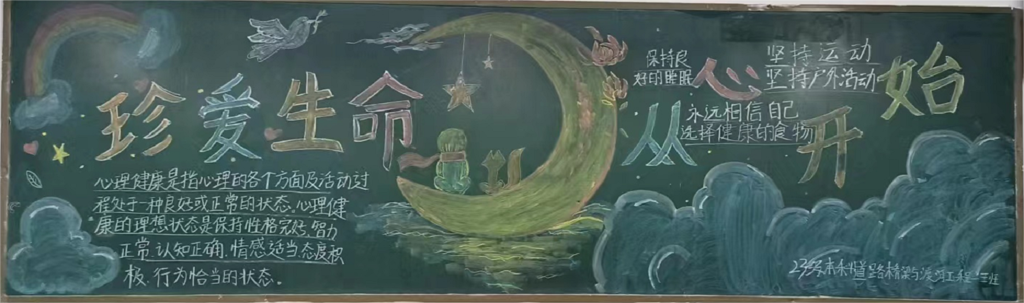 珍爱生命
心理健康是指心理的各个方面及活动过
程处于一种良好或正常的状态。心理健
康的理想状态是保持性格完好、智力
正常、认知正确、情感适当、态度积
极、行为恰当的状态。
从心开始
保持良
好的睡眠
坚持运动
坚持户外活动
永远相信自己
选择健康的食物